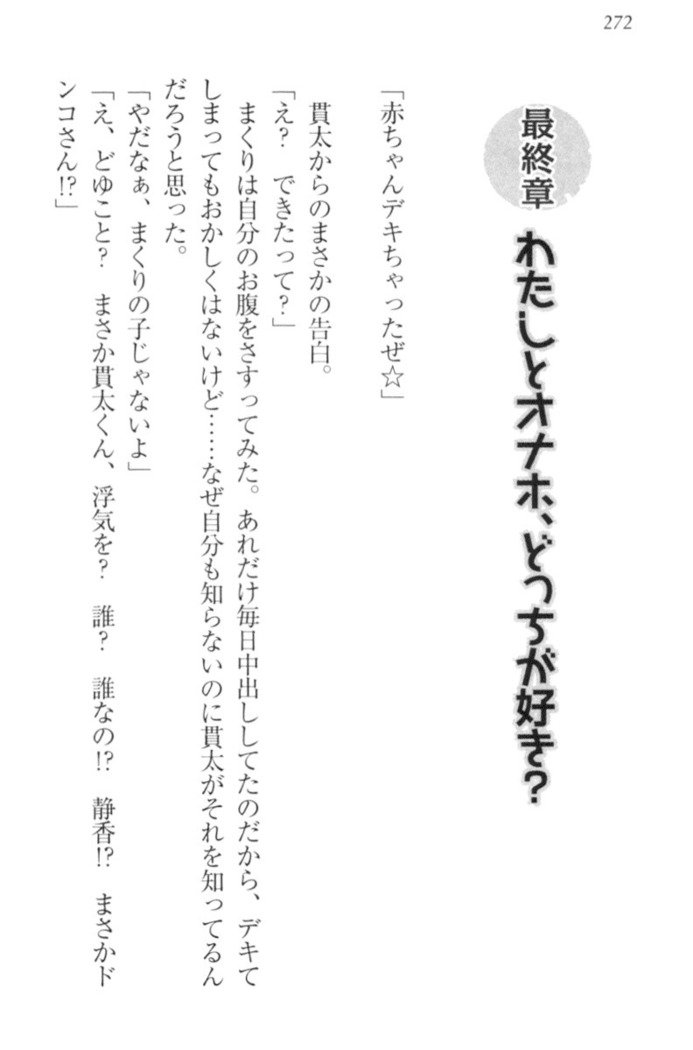 272
最終章 わたしとオナホ、どっちが好き?
「赤ちゃんデキちゃったぜ☆」
貫太からのまさかの告白。
「え?　できたって?」
まくりは自分のお腹をさすってみた。あれだけ毎日中出ししてたのだから、デキて
しまってもおかしくはないけど……なぜ自分も知らないのに貫太がそれを知ってるん
だろうと思った。
「やだなぁ、まくりの子じゃないよ」
「え、どゆこと?　まさか貫太くん、浮気を?　誰?　誰なの!?　静香!?　まさかド
ンコさん!?」